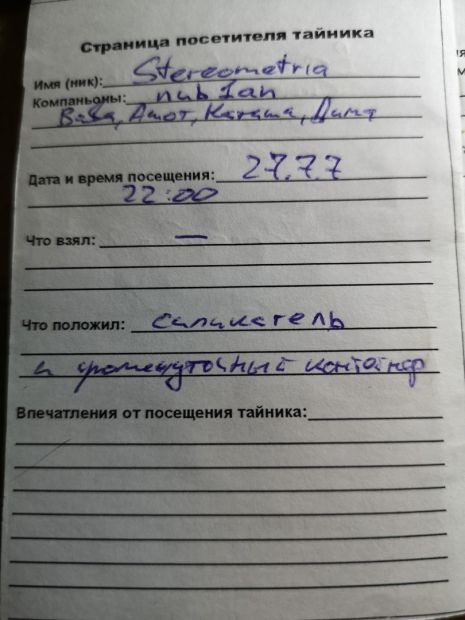 Страница посетителя тайника
Имя (ник): Stereometria
Компаньоны: nub Ian
Вава, Дмот, Катаma, Дима
Дата и время посещения: 27.7.7
22:00
Что взял: —
Что положил: силикагель
и промежуточный контейнер
Впечатления от посещения тайника: